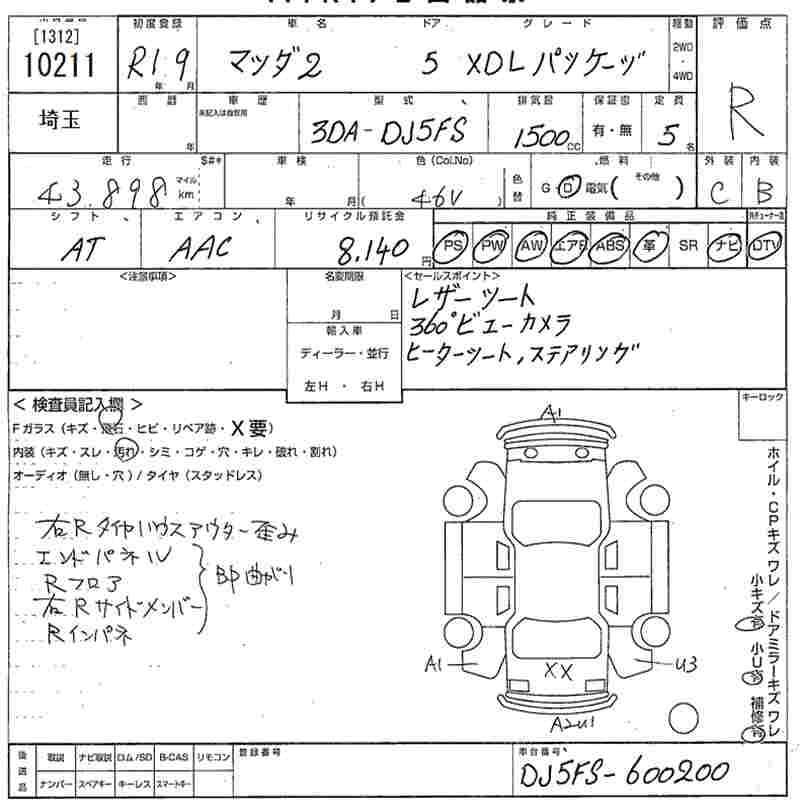 [1312]
10211
初度登録
R1.9
年 月
車名
マツダ2
ドア
5
グレード
XDLパッケージ
駆動
2WD
・
4WD
評価点
R
埼玉
西暦
年
車歴
未記入は自家用
型式
3DA-DJ5FS
排気量
1500cc
保証書
有・無
定員
5名
走行
$#*
43.898
マイル
km
車検
年 月
色(Col.No)
( 46V )
色替
燃料
G・D 電気( その他 )
外装
C
内装
B
シフト
AT
エアコン
AAC
リサイクル預託金
8.140円
純正装備品
PS PW AW エアB ABS 革 SR ナビ DTV
<注意事項>
名変期限
月 日
輸入車
ディーラー・並行
左H ・ 右H
<セールスポイント>
レザーシート
360°ビューカメラ
ヒーターシート,ステアリング
< 検査員記入欄 >
Fガラス(キズ・飛石・ヒビ・リペア跡・X要)
内装(キズ・スレ・汚れ・シミ・コゲ・穴・キレ・破れ・割れ)
オーディオ(無し・穴)/タイヤ(スタッドレス)
キーロック
右Rタイヤハウスアウター歪み
エンドパネル
Rフロア
右Rサイドメンバー
Rインパネ
BP曲がり
A1
A1
XX
U3
A2U1
ホイル・CPキズワレ/ドアミラーキズワレ
小キズ有 小U有 補修有
後送品
取説 ナビ取説 ロム/SD B-CAS リモコン
ナンバー スペアキー キーレス スマートキー
登録番号
車台番号
DJ5FS-600200